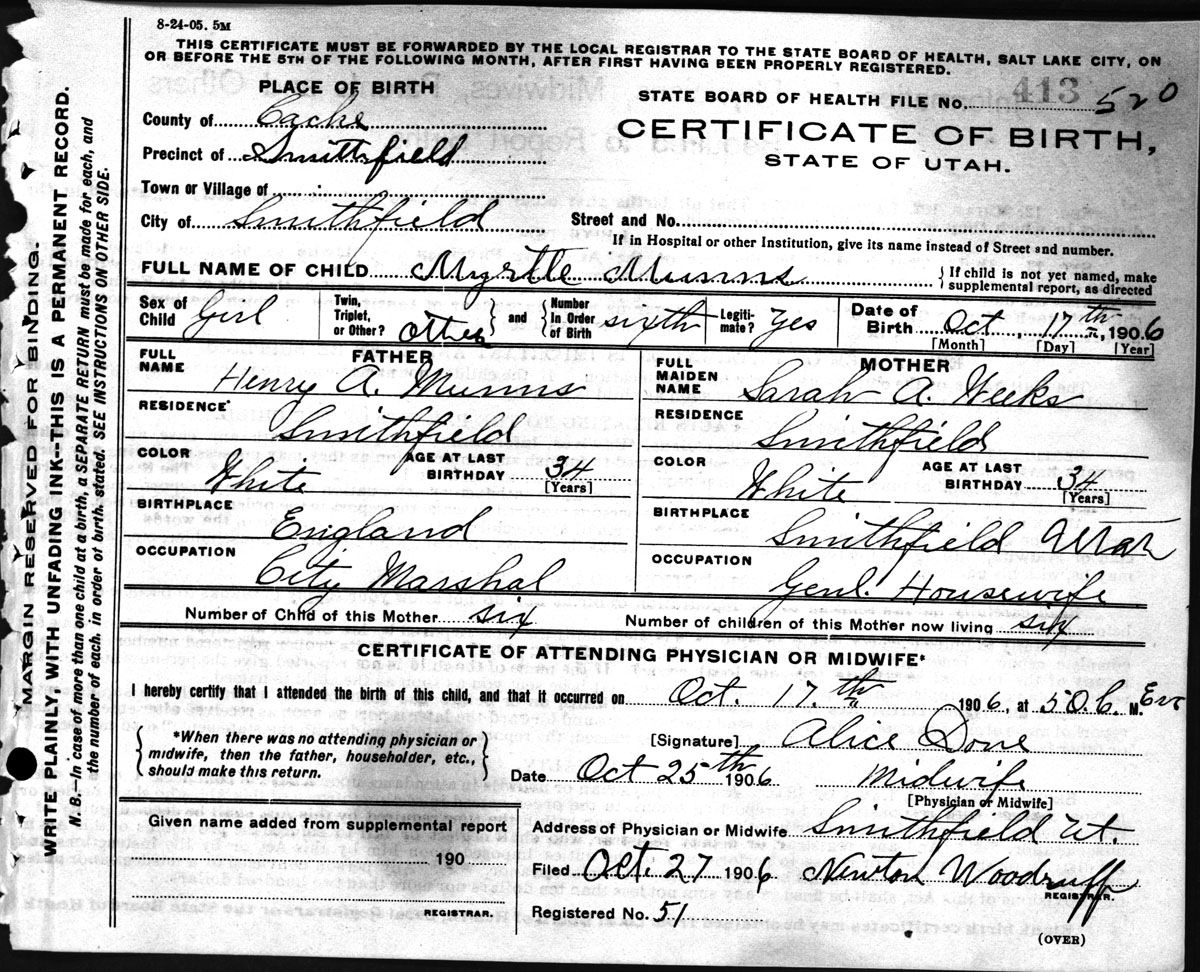 8-24-05. 5M
THIS CERTIFICATE MUST BE FORWARDED BY THE LOCAL REGISTRAR TO THE STATE BOARD OF HEALTH, SALT LAKE CITY, ON
OR BEFORE THE 5TH OF THE FOLLOWING MONTH, AFTER FIRST HAVING BEEN PROPERLY REGISTERED.
PLACE OF BIRTH
County of Cache
Precinct of Smithfield
Town or Village of
City of Smithfield
STATE BOARD OF HEALTH FILE No. 413 520
CERTIFICATE OF BIRTH,
STATE OF UTAH.
Street and No.
If in Hospital or other Institution, give its name instead of Street and number.
FULL NAME OF CHILD Myrtle Munns
{ If child is not yet named, make
supplemental report, as directed
Sex of Child Girl
Twin, Triplet, or Other? other } and { Number In Order of Birth sixth
Legiti- mate? Yes
Date of Birth Oct, 17th, 1906
[Month] [Day] [Year]
FATHER
FULL NAME Henry A. Munns
RESIDENCE Smithfield
COLOR White AGE AT LAST BIRTHDAY 34
[Years]
BIRTHPLACE England
OCCUPATION City Marshal
MOTHER
FULL MAIDEN NAME Sarah A. Weeks
RESIDENCE Smithfield
COLOR White AGE AT LAST BIRTHDAY 34
[Years]
BIRTHPLACE Smithfield Utah
OCCUPATION Genl. Housewife
Number of Child of this Mother six Number of children of this Mother now living six
CERTIFICATE OF ATTENDING PHYSICIAN OR MIDWIFE*
I hereby certify that I attended the birth of this child, and that it occurred on Oct. 17.th 1906, at 50.6. M. Eve
{ *When there was no attending physician or
midwife, then the father, householder, etc.,
should make this return. }
[Signature] Alice Done
Date Oct 25th 1906 Midwife
[Physician or Midwife]
Given name added from supplemental report
190
REGISTRAR.
Address of Physician or Midwife Smithfield Ut.
Filed Oct. 27 1906 Newton Woodruff
REGISTRAR.
Registered No. 51
(OVER)
MARGIN RESERVED FOR BINDING.
WRITE PLAINLY WITH UNFADING INK--THIS IS A PERMANENT RECORD.
N. B.--In case of more than one child at a birth, a SEPARATE RETURN must be made for each, and
the number of each, in order of birth, stated. SEE INSTRUCTIONS ON OTHER SIDE.